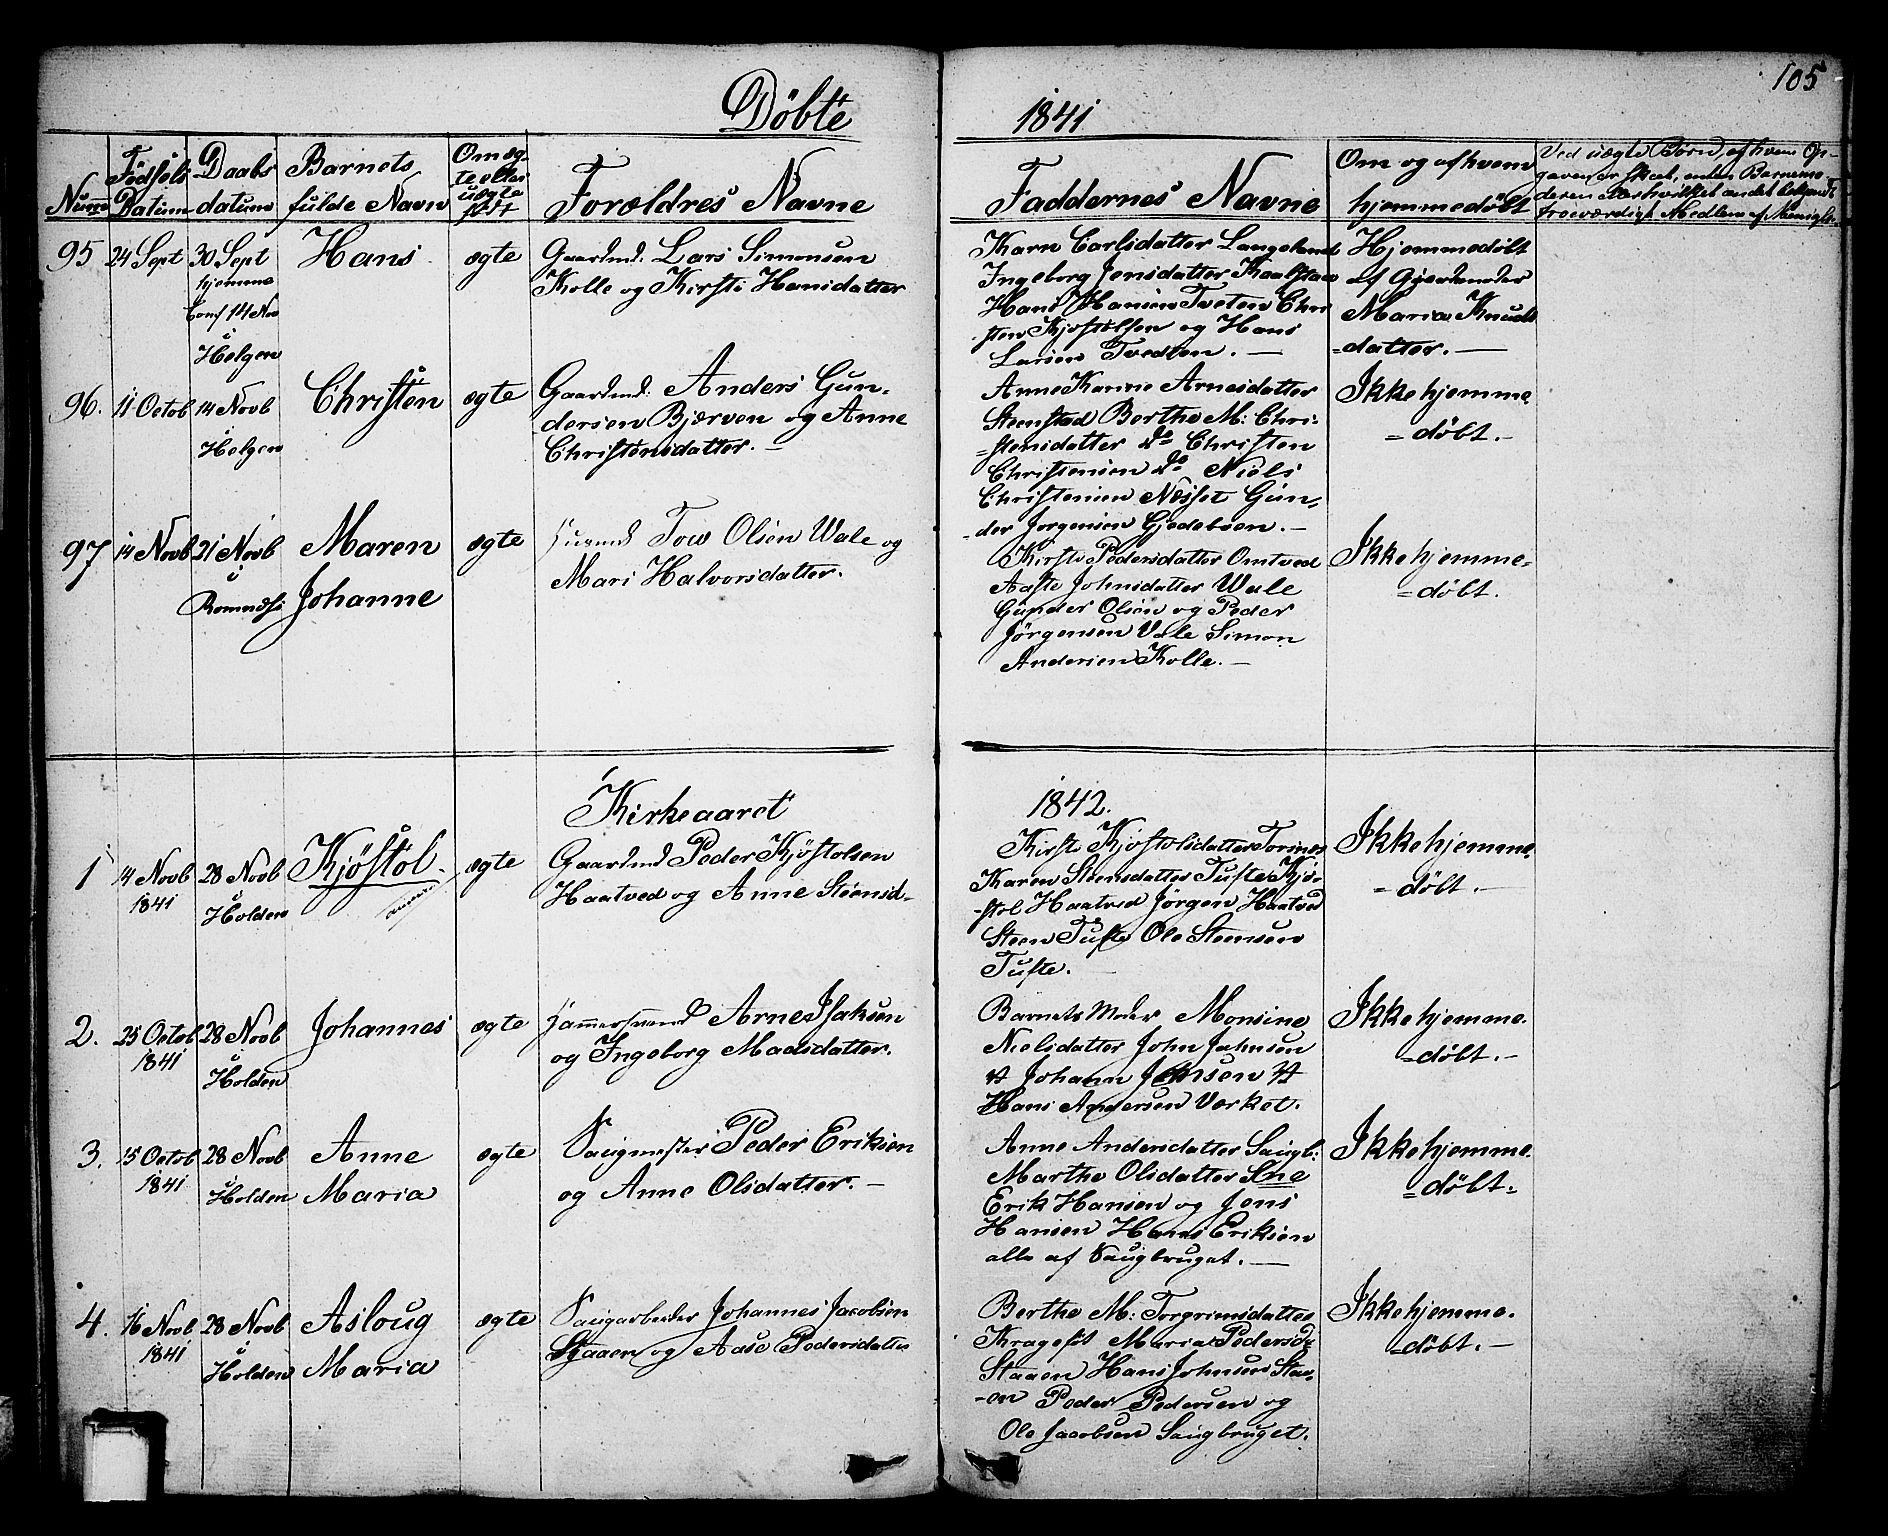 105
Döbte 1841
Numro
Födsels Datum
Daabs datum
Barnets fulde Navn
Om ægte eller uægte født
Forældres Navne
Faddernes Navne
Om og af hvem hjemmedøbt
Ved uægte Børn, af hvem Op-
95 24 Sept 30 Sept hjemme Conf 14 Nov i Helgen
Hans
ægte
Gaardmd. Lars Simonsen
Kolle og Kirsti Hansdatter
Karn Carlsdatter Langeland
Ingeborg Jensdatter Kaalstad
Hans Hansen Tveten Chri
sten Kjøstolsen og Hans
Larsen Tvedten. —
Hjemmedöbt
af Gjordemoder
Maria Knuds
=datter. —
96. 11 Octob 14 Novb i Helgen
Christen
ægte
Gaardmd. Anders Gun-
dersen Bjærven og Anne
Christensdatter. —
Anne Karine Arnesdatter
Steenstad Berthe M: Chri-
=stensdatter do Christen
Christensen do Niels
Christensen Næsset Gun-
=der Jørgensen Gjedeboen. —
Ikke hjemme-
=døbt. —
97 14 Novb 21 Novb i Romnæs
Maren
Johanne
ægte
Huusmd Tow Olsen Wale og
Mari Halvorsdatter.
Kirsti Pedersdatter Omtved
Aaste Johnsdatter Wale
Gunder Olsen og Peder
Jörgensen Vale Simon
Andersen Kolle. —
Ikke hjemme=
=döbt.
Kirkeaaret 1842.
1 14 Novb 1841 28 Novb i Holden
Kjöstöl.
ægte
Gaardmd Peder Kjöstolsen
Haatved og Anne Steensd=
Kirsti Kjöstolsdatter
Karen Steensdatter Tufte Kjö-
-stol Haatved Jörgen Haatved
Steen Tufte Ole Steensen
Tufte.
Ikke hjemme-
=döbt. —
2. 25 Octob 1841 28 Novb i Holden
Johannes
ægte
Hammersmed Arne Isaksen
og Ingeborg Madsdatter.
Barnets Moder Monsine
Nielsdatter John Jahnsen
Johann Jensen
Hans Andersen Verket.
Ikke hjemme-
=döbt. —
3. 15 Octob 1841 28 Novb i Holden
Anne
Maria
ægte
Saugmester Peder Eriksen
og Anne Olsdatter. —
Anne Andersdatter Saugb:
Marthe Olsdatter
Erik Hansen og Jens
Hansen Hans Eriksen
alle af Saugbruget. —
Ikke hjemme-
=döbt=
4. 16 Novb 1841 28 Novb i Holden
Asloug
Maria
ægte
Saugarbeider Johannes Jacobsen
Staaen og Aase Pedersdatter
Berthe M: Torgrimsdatter
Maria Pedersd=
Staaen Hans Johnsen Staa-
-en Peder Pedersen og
Ole Jacobsen Saugbruget.
Ikke hjemme-
=döbt. —